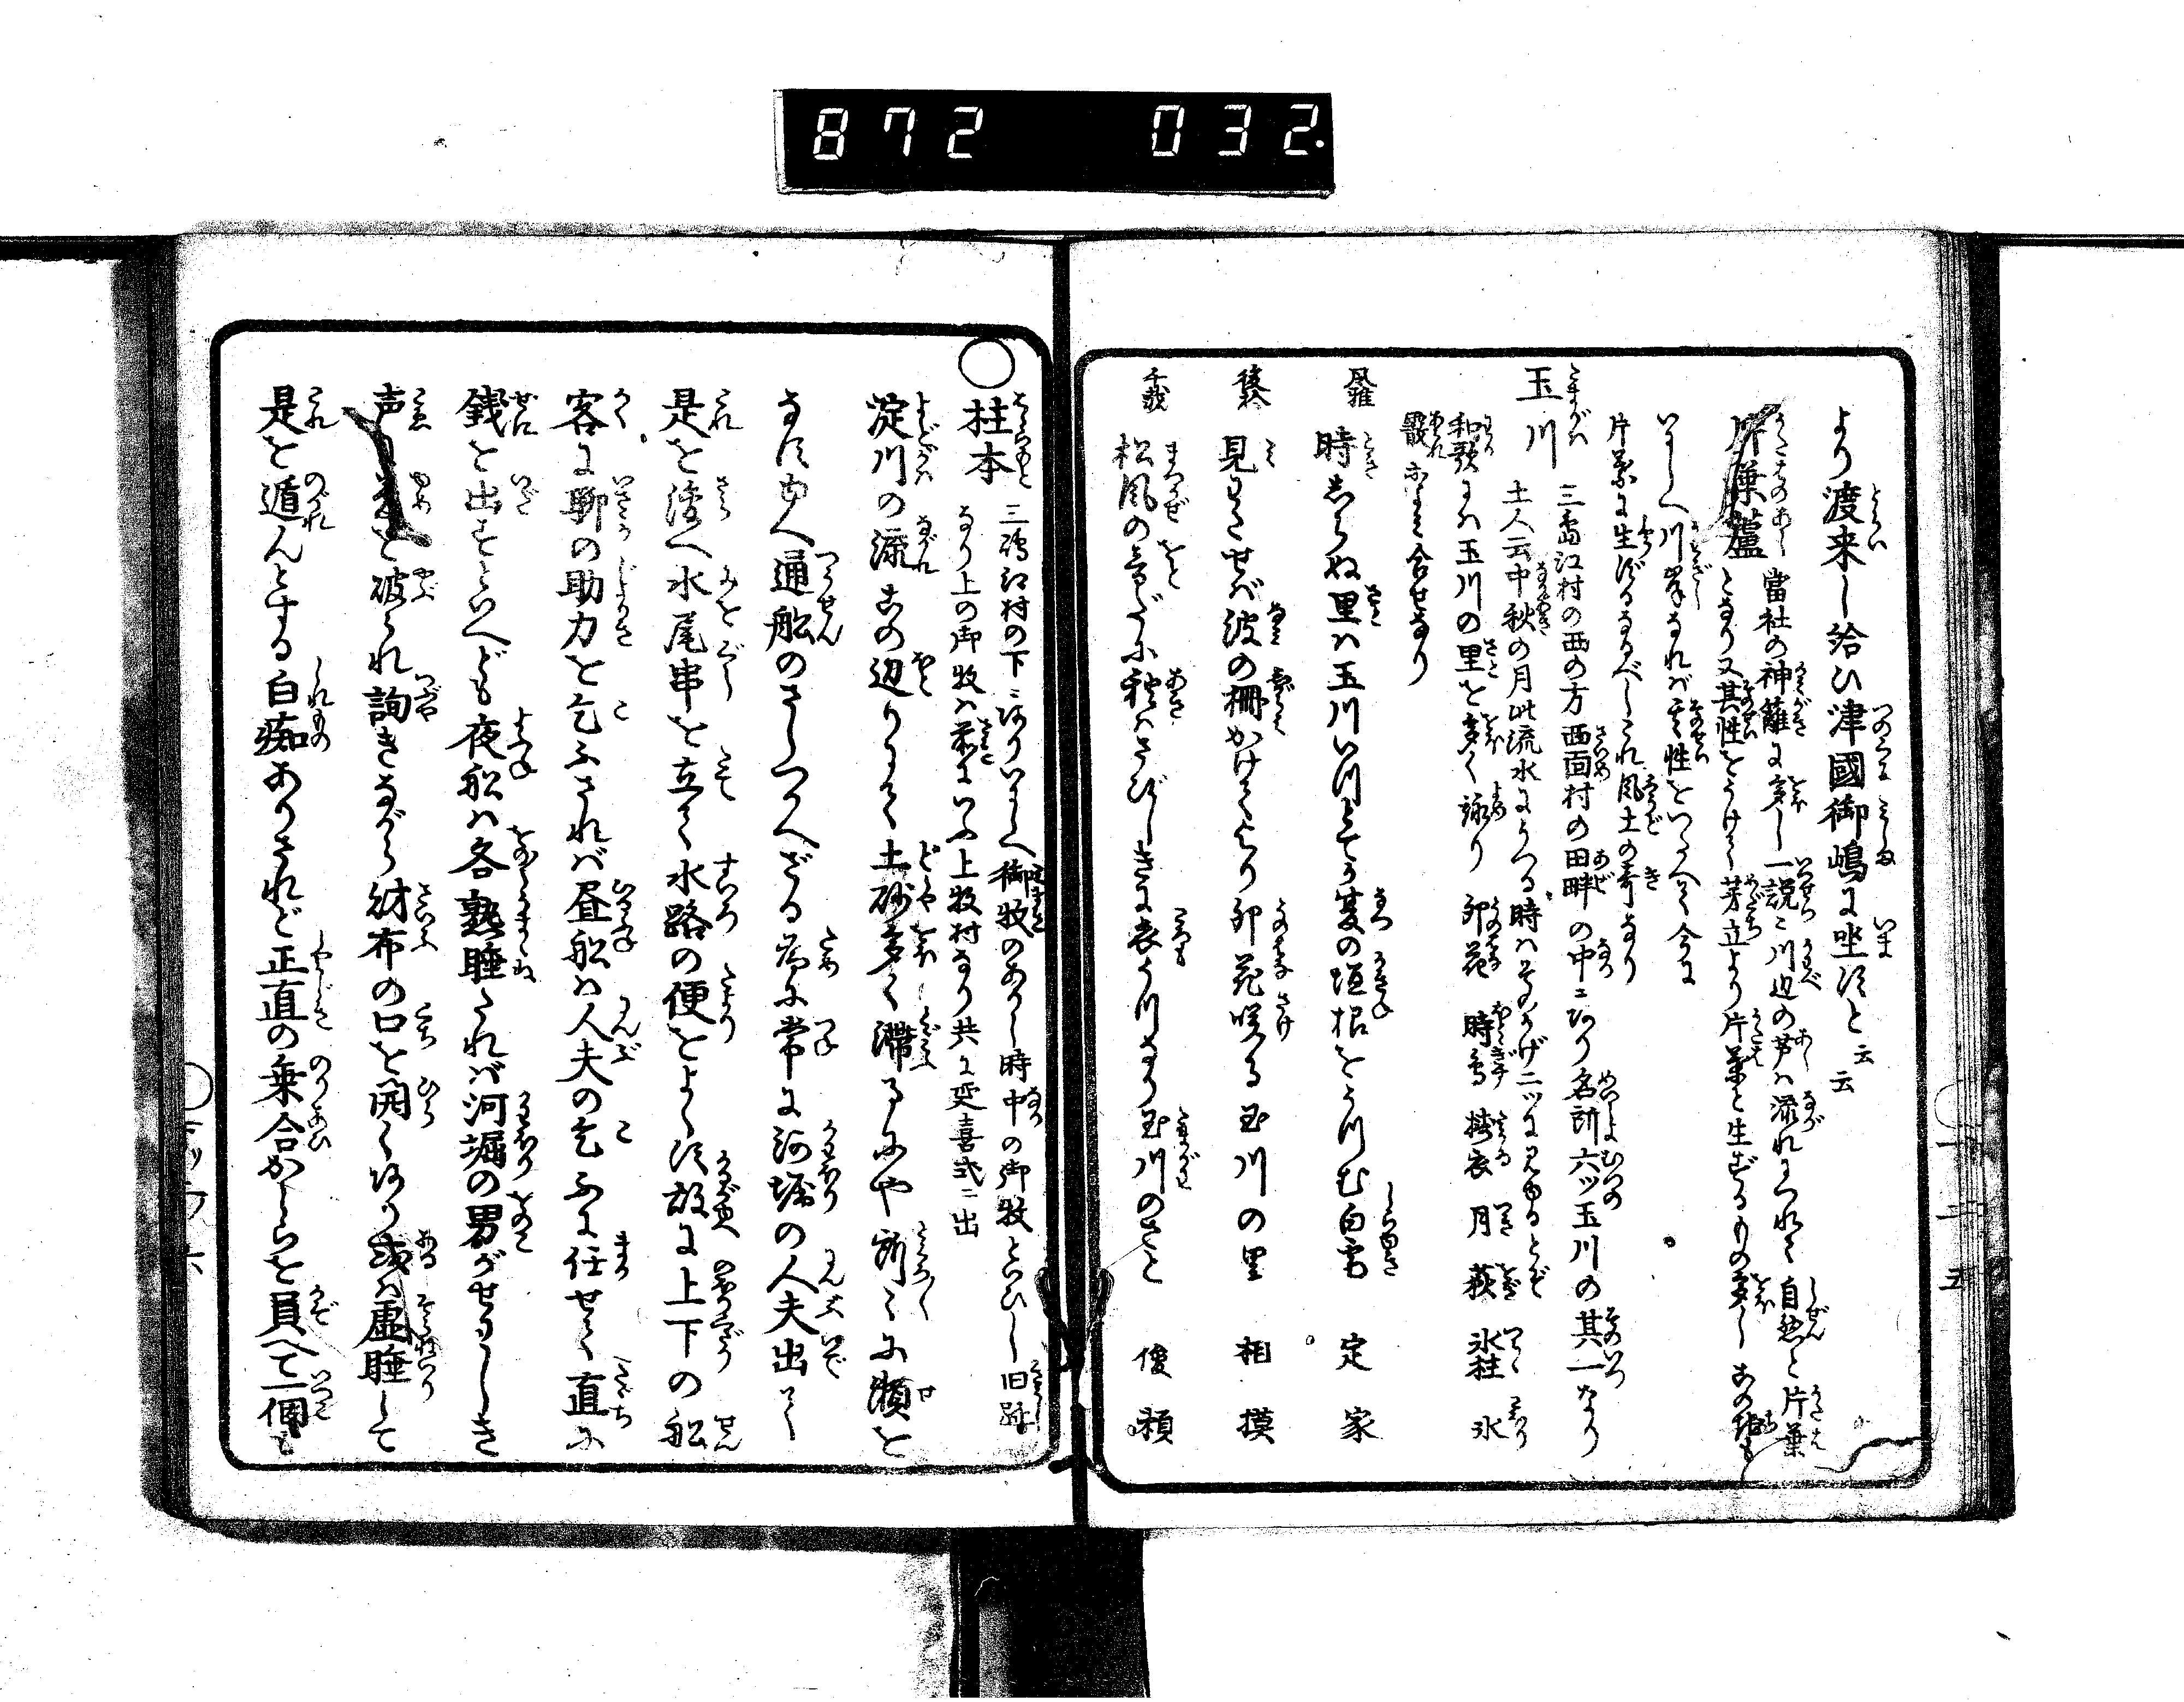 872 032.
より渡来し給ひ津國御嶋に坐すと云云
片葉蘆 當社の神籬に多し一説ニ川辺の芦は流れにつれて自然と片葉
となり又其性をうけて芽立より片葉と生ずるもの多しあの地も
いにしへ川岸なれば其性をつたへて今に
片葉に生ずるなるべしこれ風土の奇なり
玉川 三嶌江村の西の方西面村の田畔の中ニあり名所六ッ玉川の其一なり
土人云中秋の月此流水にうつる時はそのかげ二ッに見ゆるとぞ
和歌には玉川の里を多く詠り 卯花 時鳥 擣衣 月 萩 氷柱 氷
霰などよみ合せなり
風雅 時しらぬ里は玉川いつとてか夏の垣根をうづむ白雪 定家
後拾 見わたせば波の柵かけてけり卯花咲る玉川の里 相摸
千載 松風の音だに秋はさびしきに衣うつなり玉川のさと 俊頼
○柱本 三嶋江村の下ニありいにしへ御牧のありし時中の御牧といひし旧跡
なり上の御牧は前にいふ上牧村なり共に延喜式ニ出
淀川の流この辺りにて土砂多く滞るにや所々に瀬を
なすゆへ通舩のさしつかへざる為に常に河堀の人夫出て
是を浚へ水尾串を立て水路の便をよくす故に上下の舩
客に聊の助力を乞ふされば昼舩は人夫の乞ふに任せて直に
銭を出すといへども夜舩は各熟睡たれば河堀の男がせわしき
声に夢を破られ詢きながら財布の口を開くあり或は虚睡して
是を遁んとする白痴ありされど正直の乗合かしらを員へて一個も